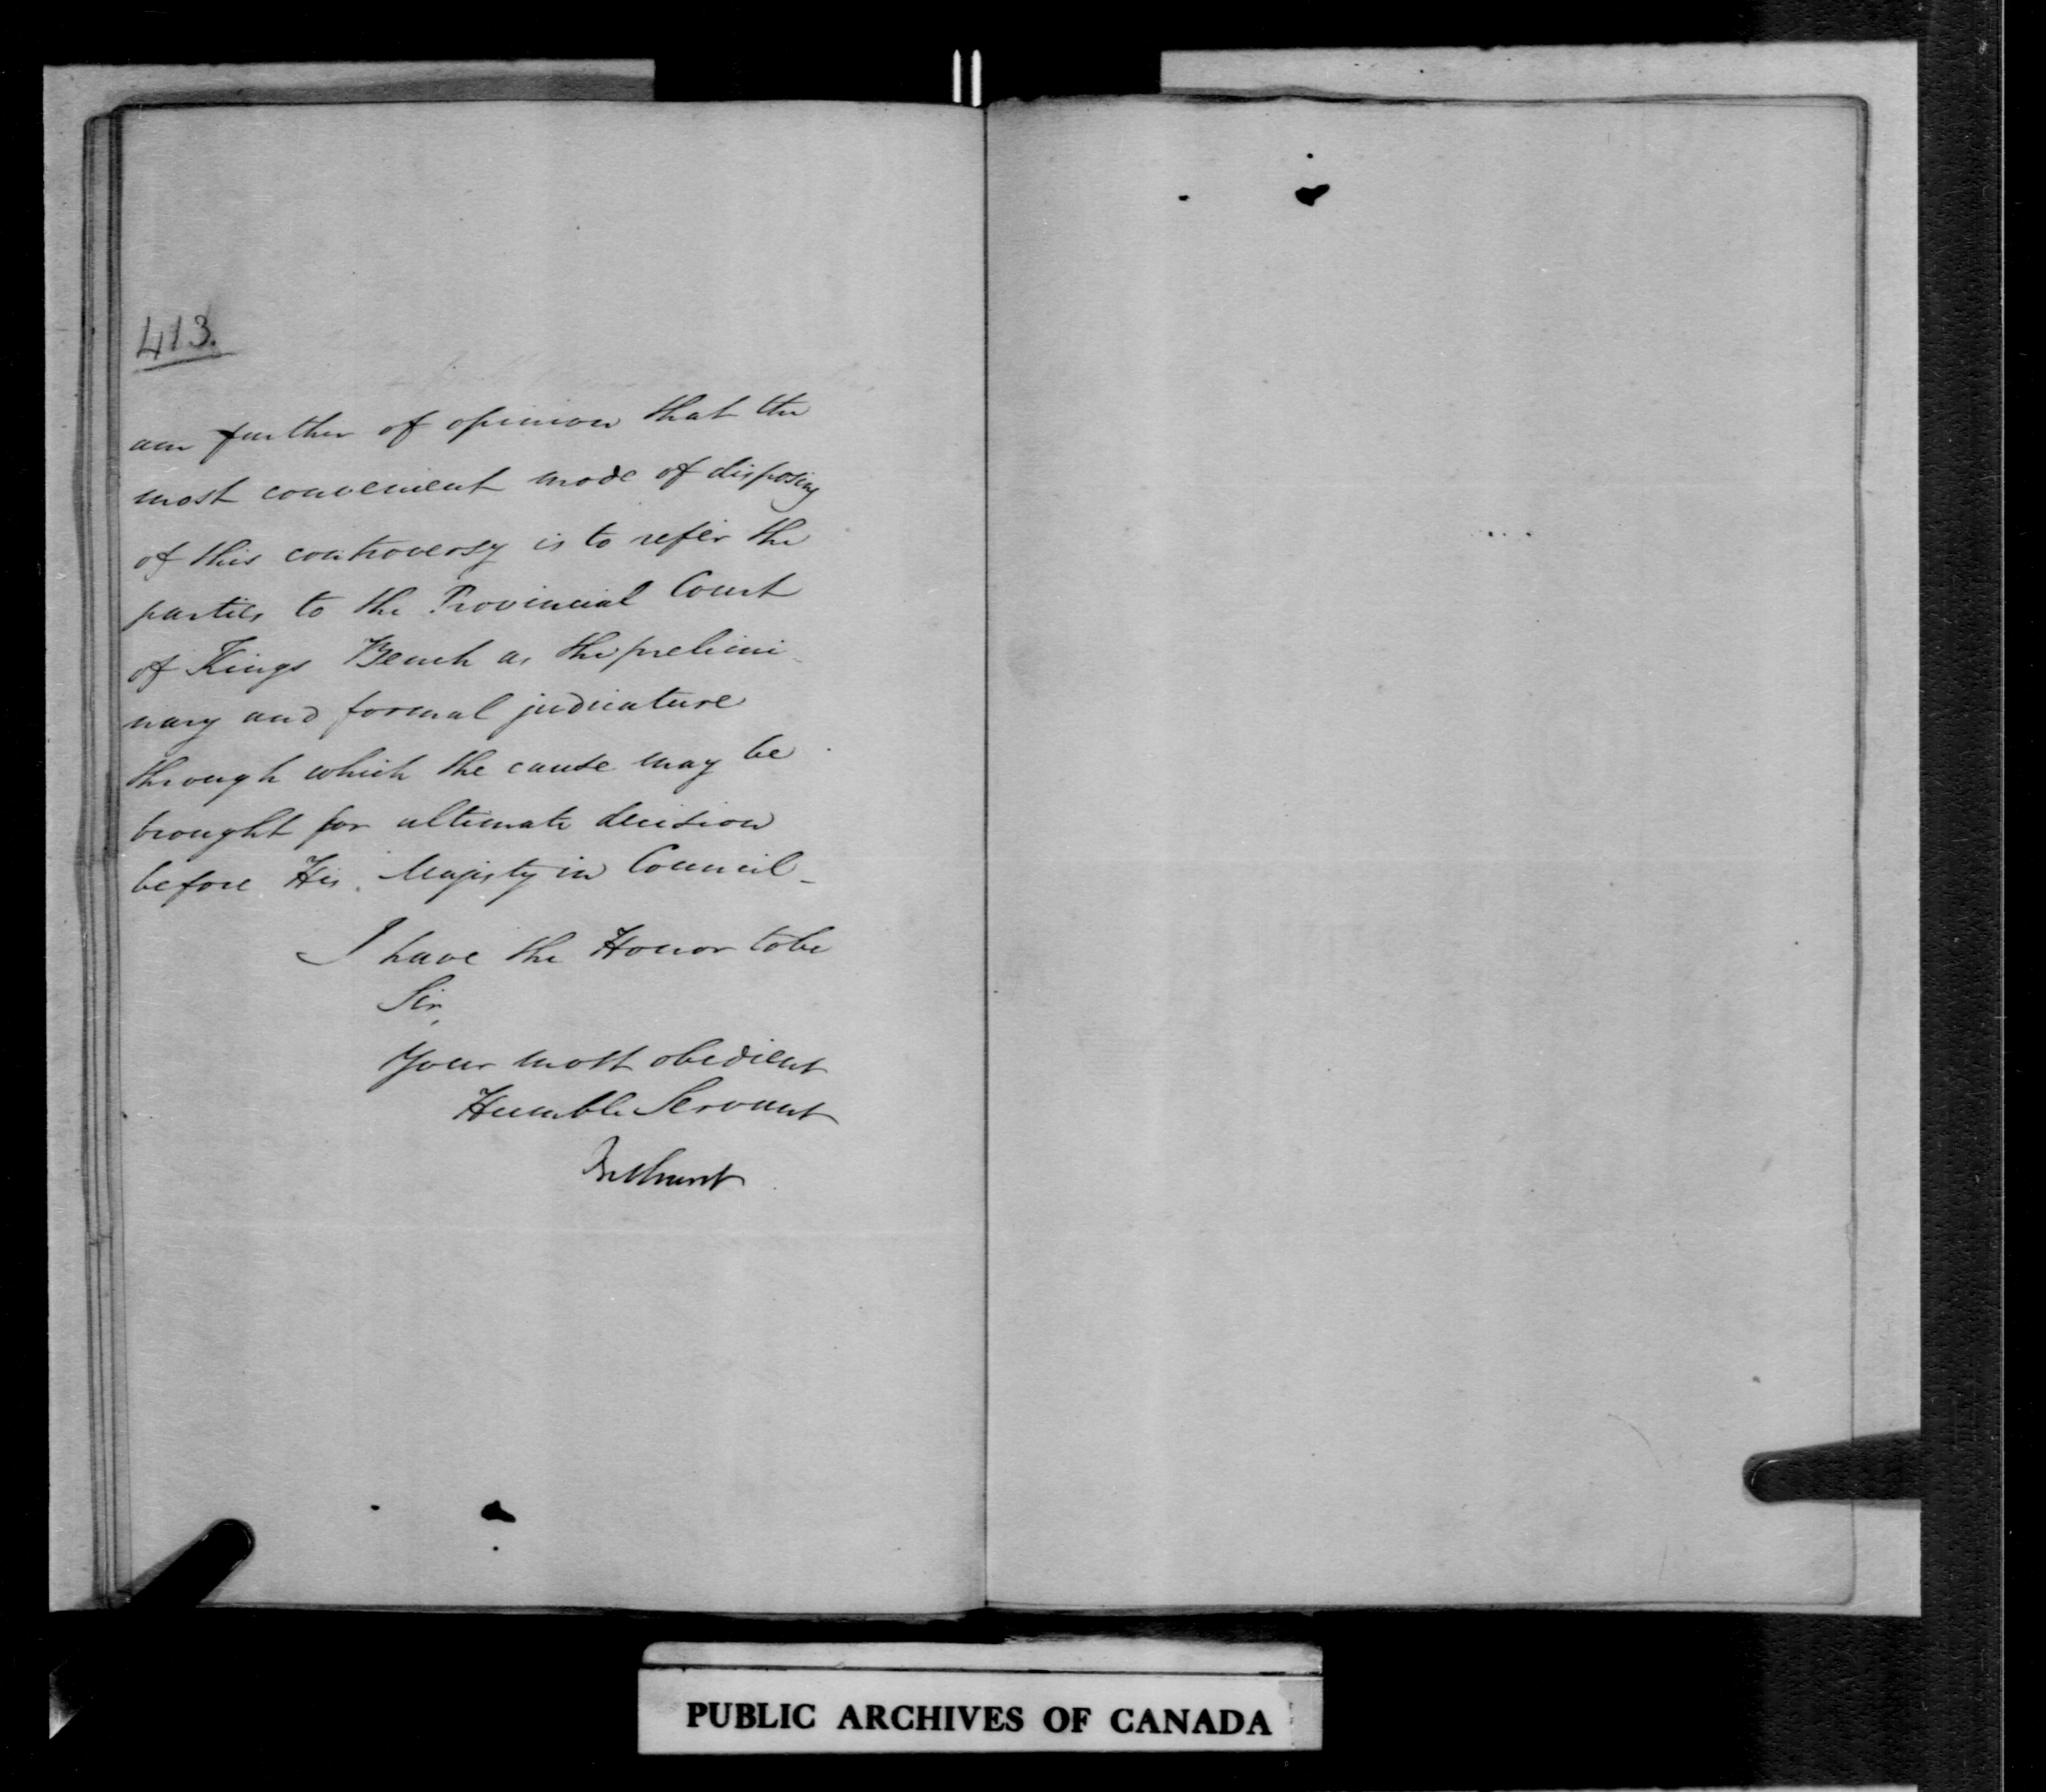 413.
am further of opinion that the
most convenient mode of disposing
of this controversy is to refer the
parties to the Provincial Court
of Kings Bench as the prelimi-
nary and formal judicature
through which the cause may be
brought for ultimate decision
before His Majesty in Council_
I have the Honor to be
Sir,
Your most obedient
Humble Servant
Bathurst
PUBLIC ARCHIVES OF CANADA